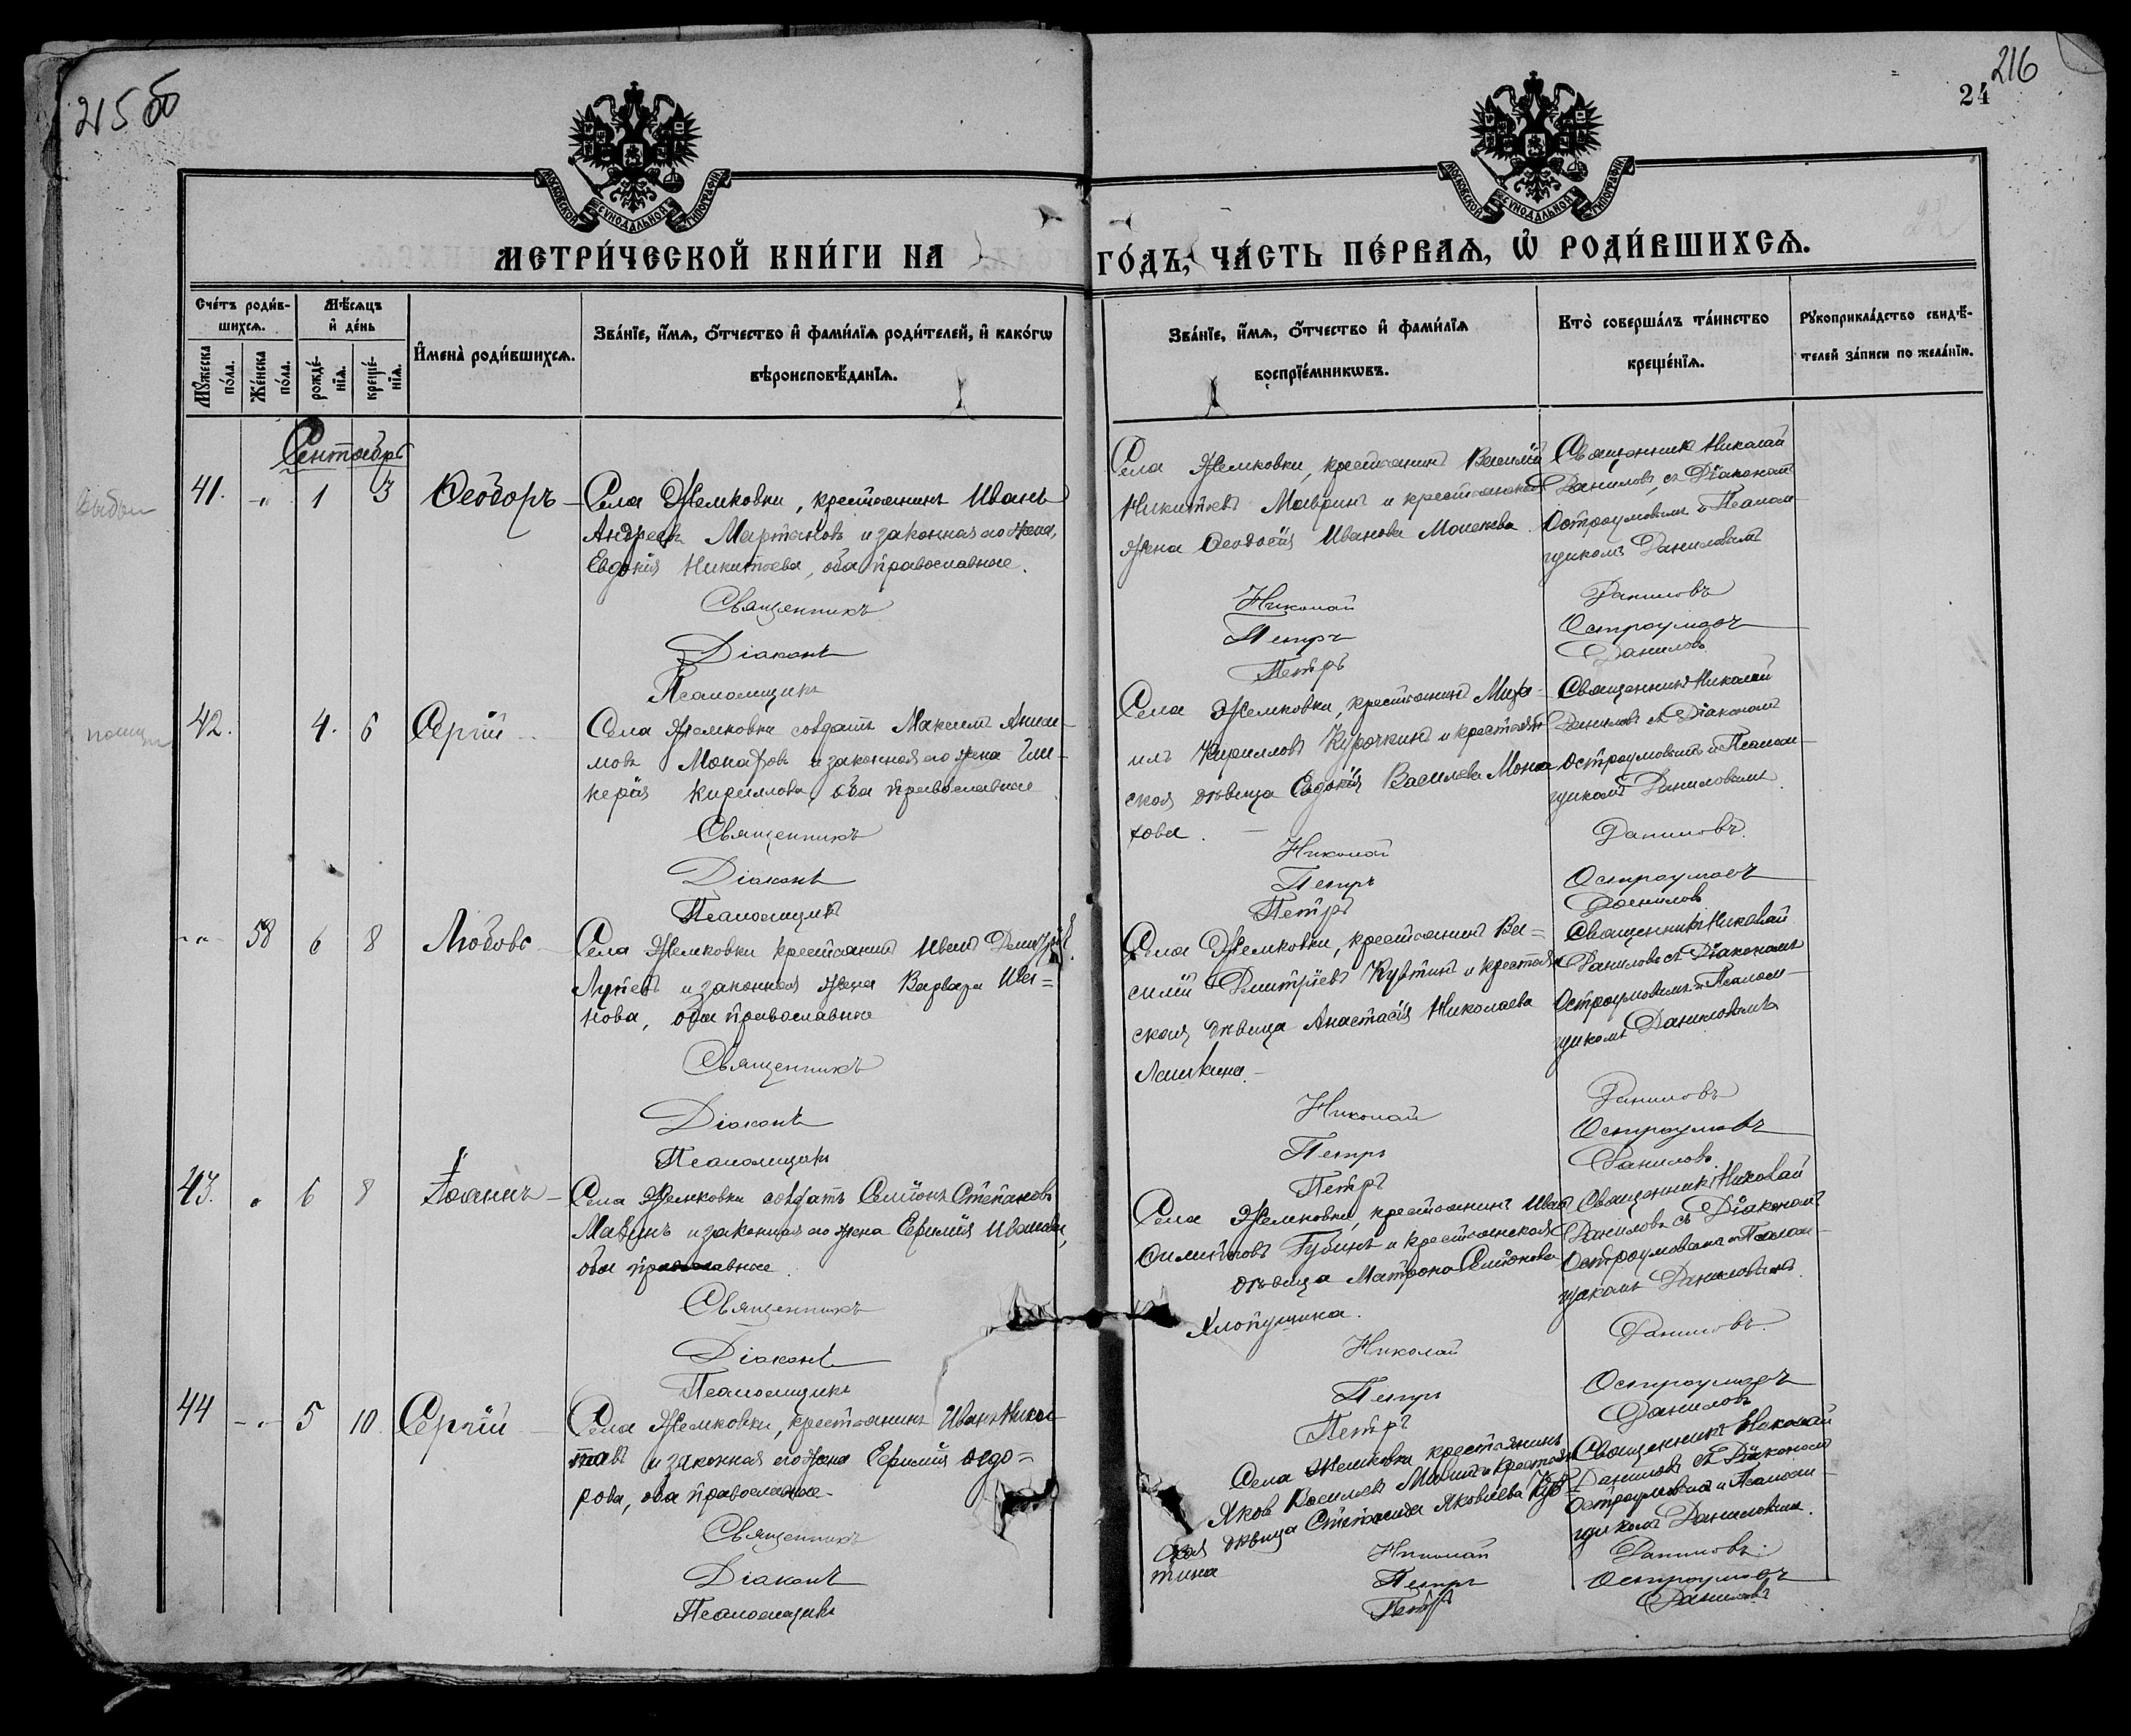 215 об
216
24
МОСКОВСКОЙ СѴНОДАЛЬНОЙ ТИПОГРАФІИ
МОСКОВСКОЙ СѴНОДАЛЬНОЙ ТИПОГРАФІИ
МЕТРИ́ЧЕСКОЙ КНИ́ГИ НА
ГО́ДЪ, ЧА́СТЬ ПЕ́РВАѦ, Ѿ РОДИ́ВШИХСѦ.
Сче́тъ роди́в-
шихсѧ.
Мѣ́сѧцъ
и҆ де́нь
Мꙋ́жеска
по́ла.
Же́нска
по́ла.
рожде́-
нїѧ.
креще́-
нїѧ.
И҆мена̀ роди́вшихсѧ.
Зва́нїе, и҆́мѧ, ѻ҆́тчество и҆ фами́лїѧ роди́телей, и҆ како́гѡ
вѣроисповѣ́данїѧ.
Зва́нїе, и҆́мѧ, ѻ҆́тчество и҆ фами́лїѧ
воспрїе́мникѡвъ.
Кто̀ соверша́лъ та́инство
креще́нїѧ.
Рꙋкоприкла́дство свидѣ́-
телей за́писи по жела́нїю.
Сентябрь
41. -"- 1 3 Ѳеодоръ
Села Жемковки, крестьянинъ Иванъ
Андреевъ Мартановъ и законная его жена,
Евдокія Никитьева, оба православные.
Священникъ
Діаконъ
Псаломщикъ
Села Жемковки, крестьянинъ Василій
Никитьевъ Мавринъ и крестьянская
жена Ѳеодосія Иванова
Николай
Петръ
Петръ
Священникъ Николай
Даниловъ, съ Діакономъ
Остроумовымъ и Псалом-
щикомъ Даниловымъ
Даниловъ
Остроумовъ
Даниловъ
42. 4. 6 Сергій
Села Жемковки солдатъ Максимъ Аниси-
мовъ Монаховъ и законная его жена Гли-
керія Кириллова, оба православные
Священникъ
Діаконъ
Псаломщикъ
Села Жемковки, крестьянинъ Миха-
илъ Кирилловъ Курочкинъ и крестьян-
ская дѣвица Евдокія Васильева Мона-
хова.
Николай
Петръ
Петръ
Священникъ Николай
Даниловъ съ Діакономъ
Остроумовымъ и Псалом-
щикомъ Даниловымъ.
Даниловъ.
Остроумовъ
Даниловъ
-"- 58 6 8 Любовь
Села Жемковки крестьянинъ Иванъ
и законная жена Варвара Ива=
нова, оба православные
Священникъ
Діаконъ
Псаломщикъ
Села Жемковки, крестьянинъ Ва=
силій Димитріевъ Куртинъ и крестьян-
ская дѣвица Анастасія Николаева
Лашкина.
Николай
Петръ
Петръ
Священникъ Николай
Даниловъ съ Діакономъ
Остроумовымъ и Псалом-
щикомъ Даниловымъ
Даниловъ
Остроумовъ
Даниловъ.
43. " 6 8 Іоаннъ
Села Жемковки солдатъ Семіонъ Степановъ
и законная его жена Ефимія Иванова,
оба православные.
Священникъ
Діаконъ
Псаломщикъ
Села Жемковки, крестьянинъ Иванъ
Филипповъ Губинъ и крестьянская
дѣвица Матрона Семіонова
Хлопушина.
Николай
Петръ
Петръ
Священникъ Николай
Даниловъ съ Діакономъ
Остроумовымъ и Псалом-
щикомъ Даниловымъ.
Даниловъ.
Остроумовъ
Даниловъ
44 -"- 5 10. Сергій
Села Жемковки, крестьянинъ Иванъ
и законная его жена Ефимія Ѳедо=
рова, оба православные.
Священникъ
Діаконъ
Псаломщикъ
Села Жемковки крестьянинъ
Яковъ Васильевъ и крестьян-
ская дѣвица Степанида Яковлева Кур-
тина
Николай
Петръ
Петръ
Священникъ Николай
Даниловъ съ Діакономъ
Остроумовымъ и Псалом-
щикомъ Даниловымъ.
Даниловъ.
Остроумовъ
Даниловъ